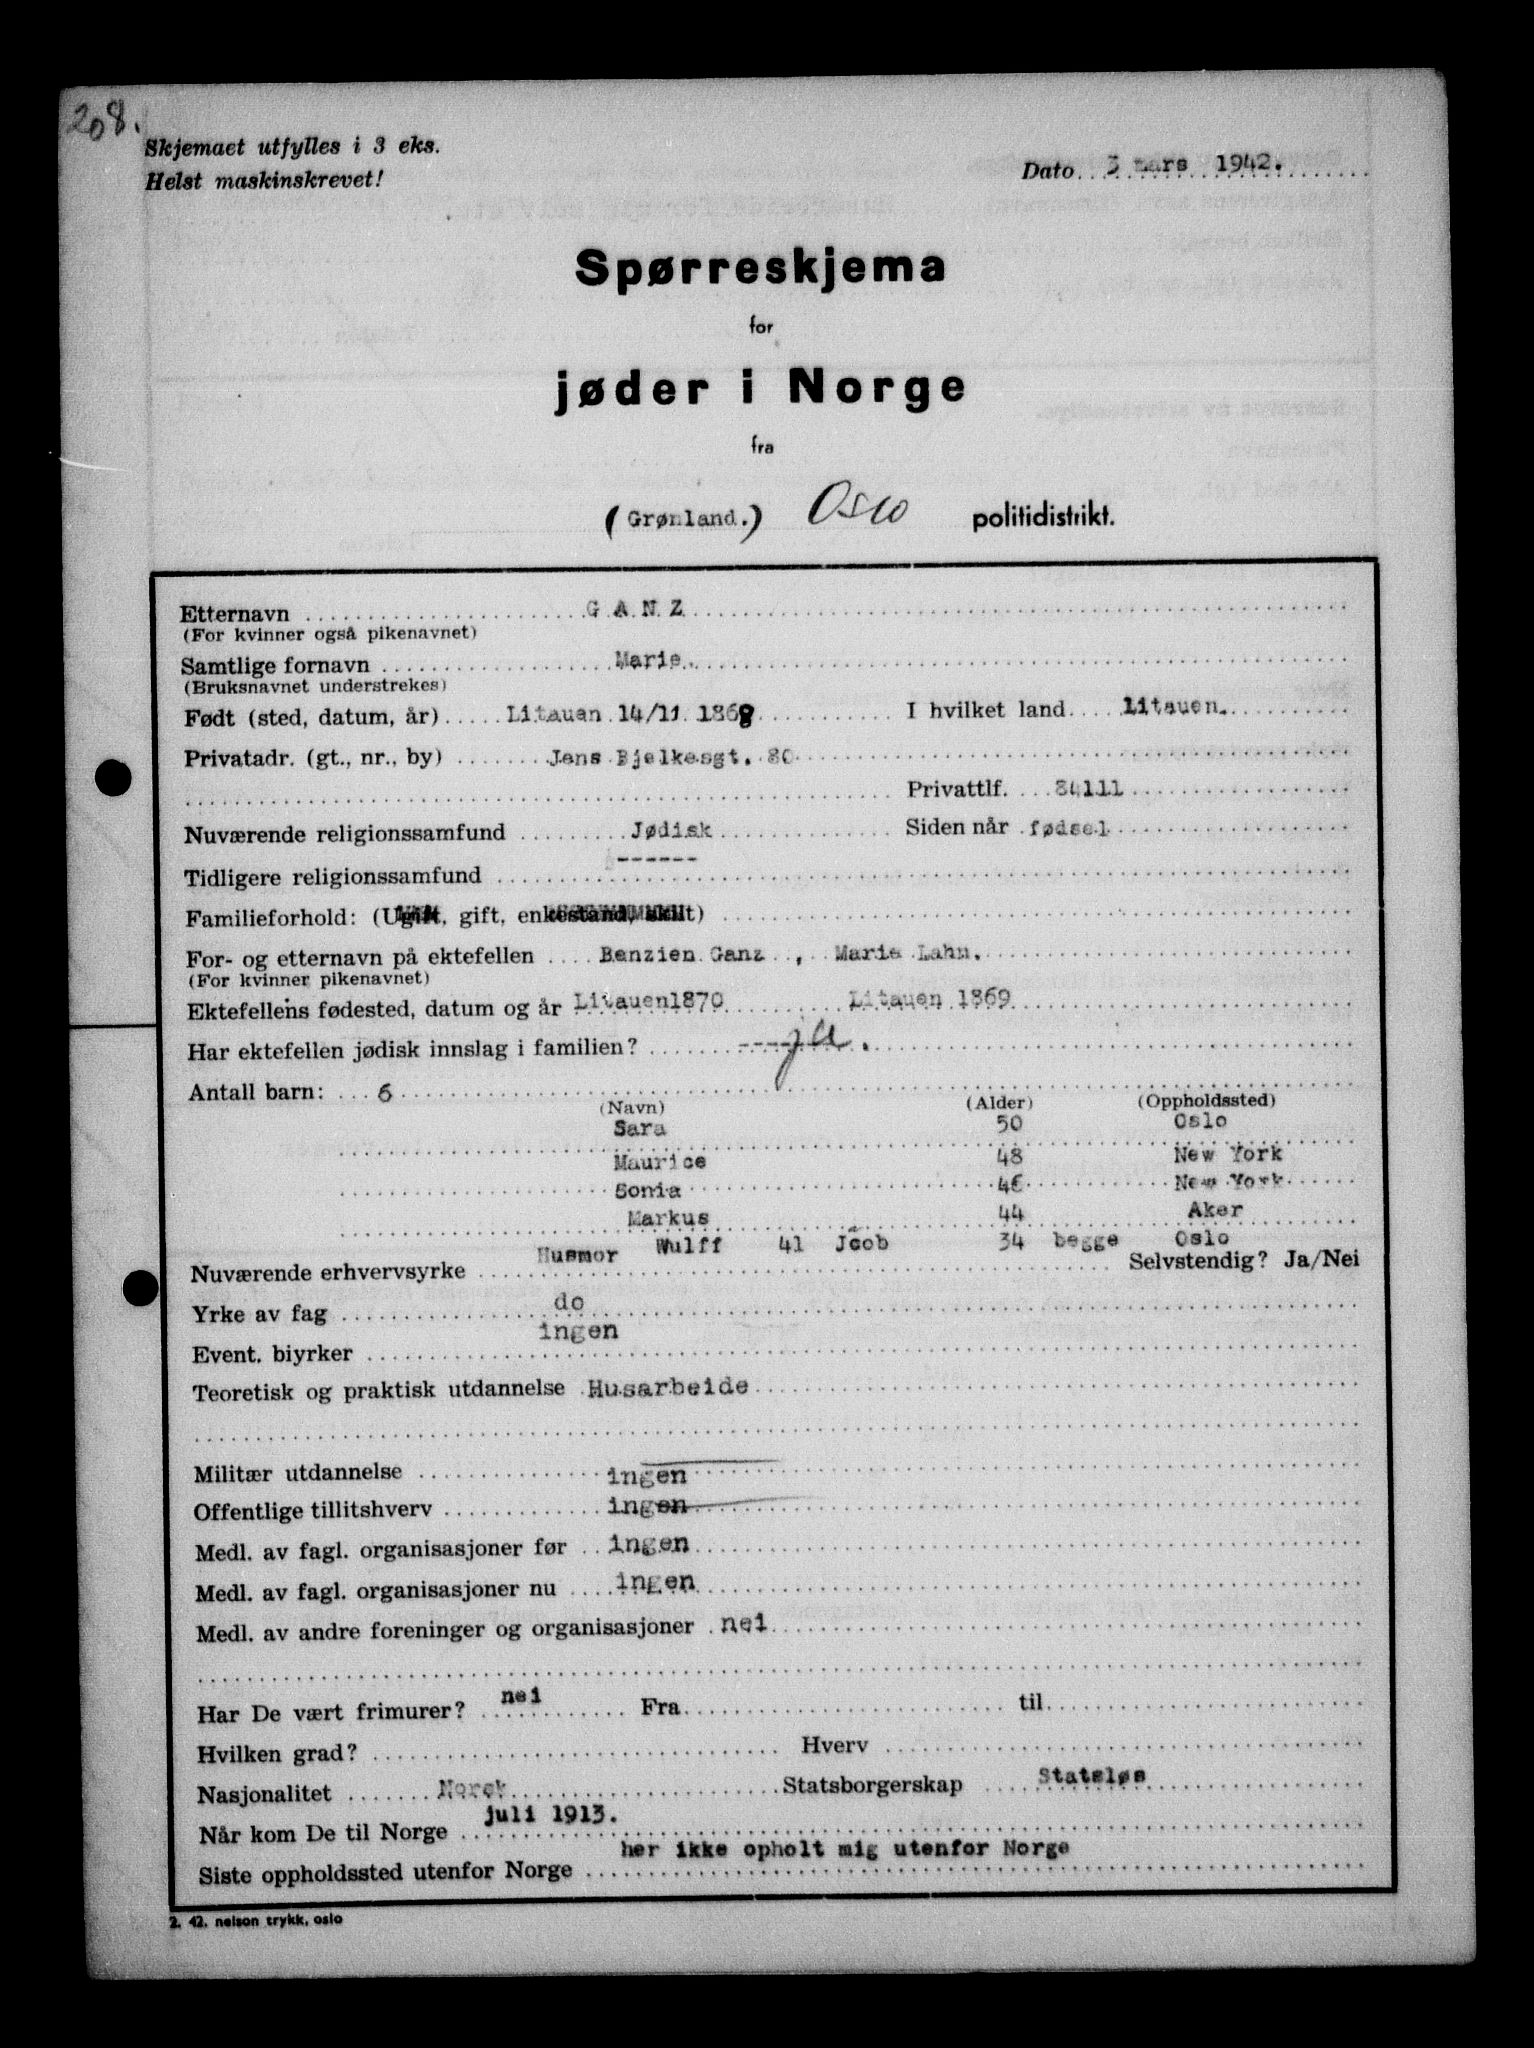 208.
Skjemaet utfylles i 3 eks.
Helst maskinskrevet!
Dato 3 mars 1942.
Spørreskjema
for
jøder i Norge
fra
(Grønland.) Oslo politidistrikt.
Etternavn GANZ
(For kvinner også pikenavnet)
Samtlige fornavn Marie.
(Bruksnavnet understrekes)
Født (sted, datum, år) Litauen 14/11 1869 I hvilket land Litauen.
Privatadr. (gt., nr., by) Jens Bjelkesgt. 80
Privattlf. 84111
Nuværende religionssamfund Jødisk Siden når fødsel
Tidligere religionssamfund ------
Familieforhold: (Ugift, gift, enkestand, skilt)
For- og etternavn på ektefellen Benzien Ganz , Marie Lahn.
(For kvinner pikenavnet)
Ektefellens fødested, datum og år Litauen1870 Litauen 1869
Har ektefellen jødisk innslag i familien? ---- ja.
Antall barn: 6
(Navn) (Alder) (Oppholdssted)
Sara 50 Oslo
Maurice 48 New York
Sonia 46 New York
Markus 44 Aker
Wulff 41 Jcob 34 begge Oslo
Nuværende erhvervsyrke Husmor Selvstendig? Ja/Nei
Yrke av fag do
Event. biyrker ingen
Teoretisk og praktisk utdannelse Husarbeide
Militær utdannelse ingen
Offentlige tillitshverv ingen
Medl. av fagl. organisasjoner før ingen
Medl. av fagl. organisasjoner nu ingen
Medl. av andre foreninger og organisasjoner nei
Har De vært frimurer? nei Fra til
Hvilken grad? Hverv
Nasjonalitet Norsk Statsborgerskap Statsløs
Når kom De til Norge juli 1913.
Siste oppholdssted utenfor Norge her ikke opholt mig utenfor Norge
2. 42. nelson trykk, oslo